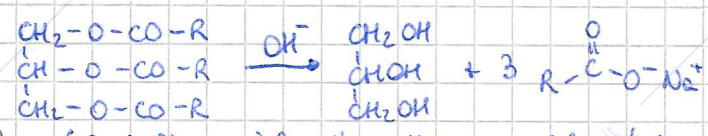 CH₂-O-CO-R
CH-O-CO-R
CH₂-O-CO-R
OH⁻
CH₂OH
CHOH
CH₂OH
+ 3
O
R-C-O⁻Na⁺